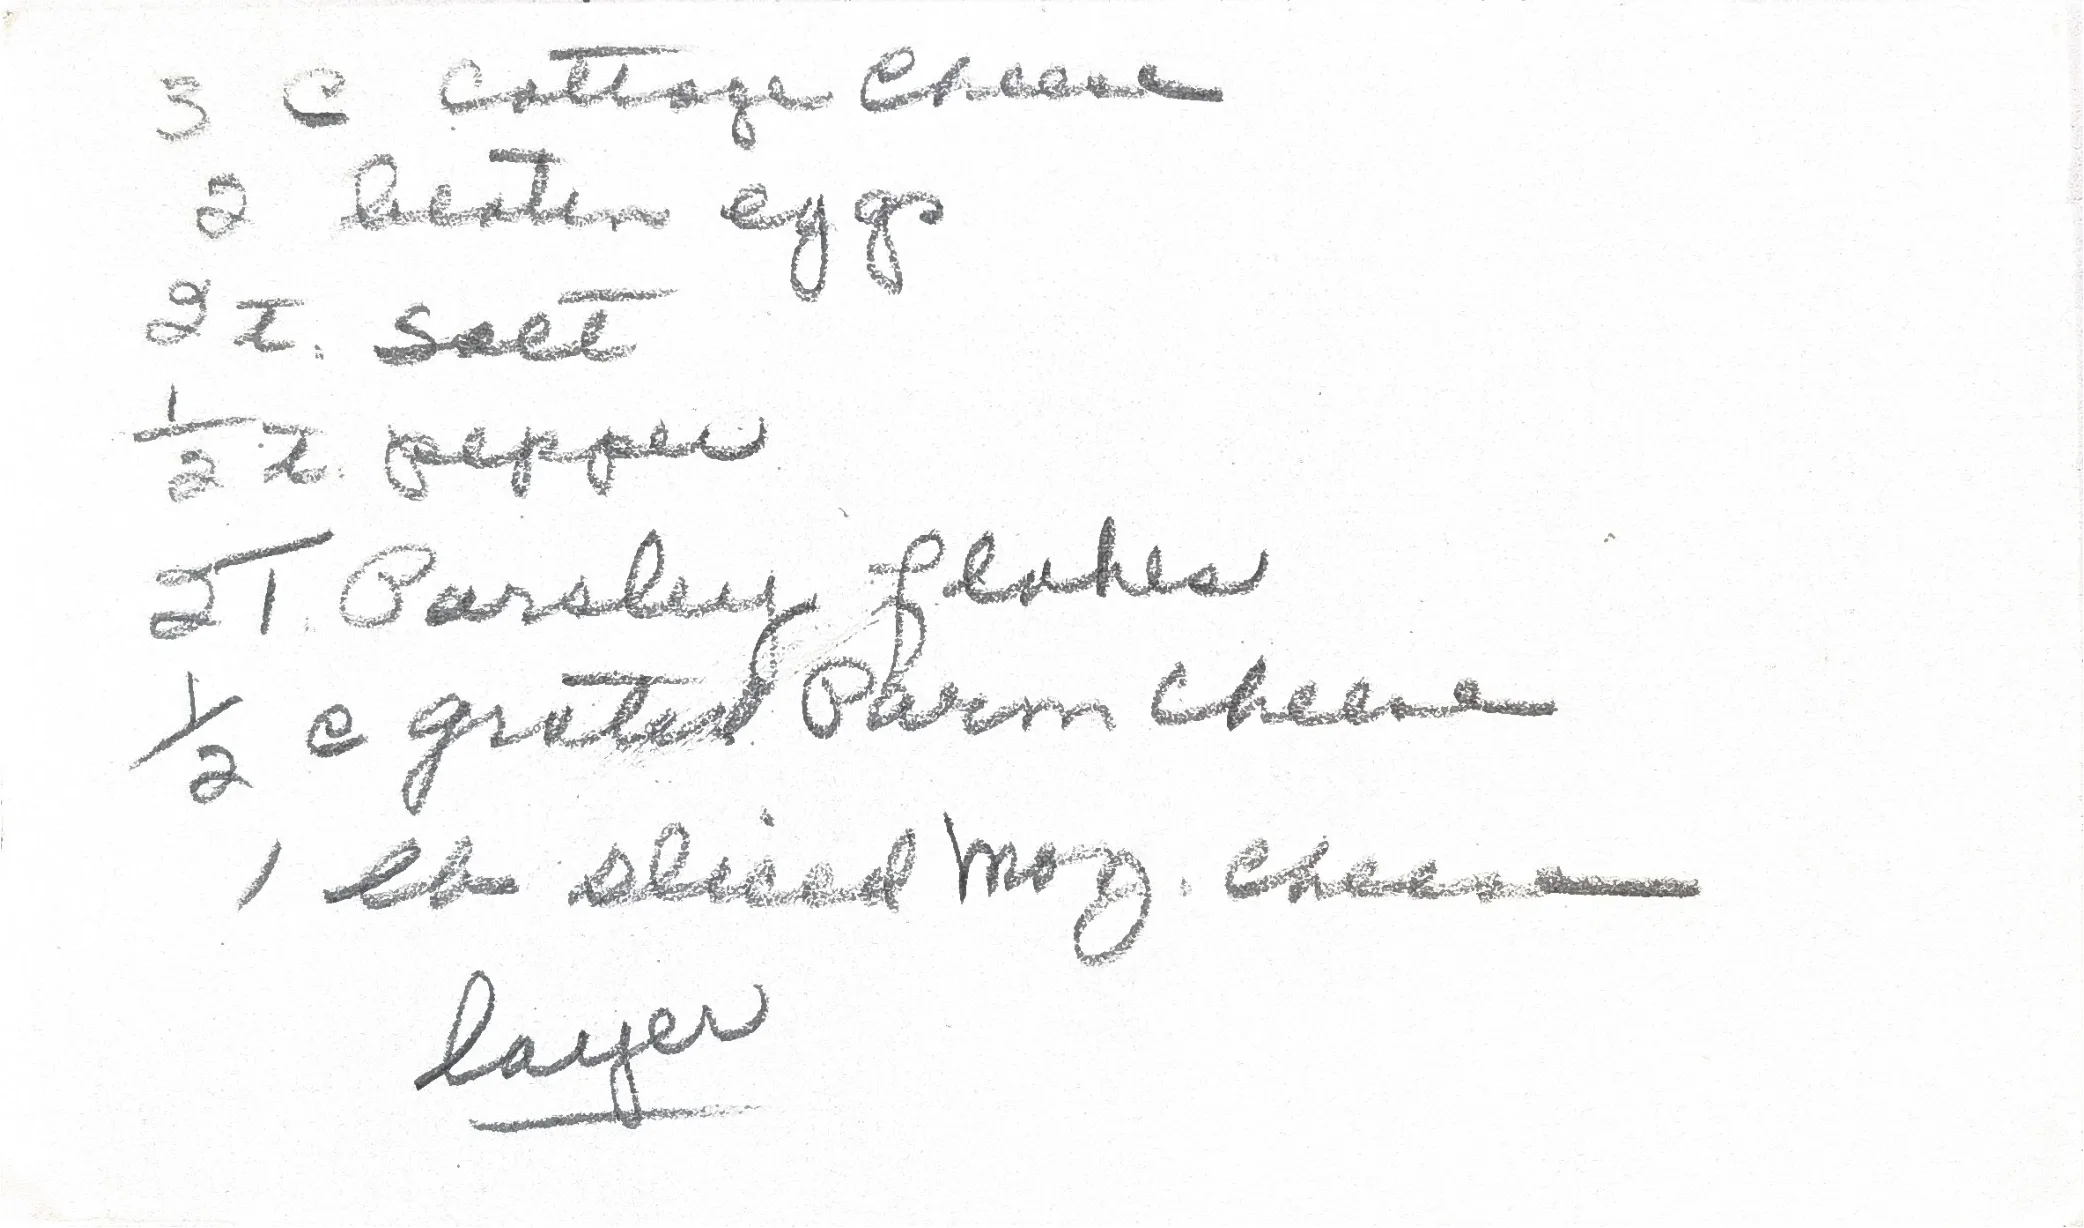 3 c Cottage Cheese
2 beaten eggs
2 t. salt
1/2 t. pepper
2 T. Parsley flakes
1/2 c grated Parm cheese
1 lb sliced Moz. cheese
layer